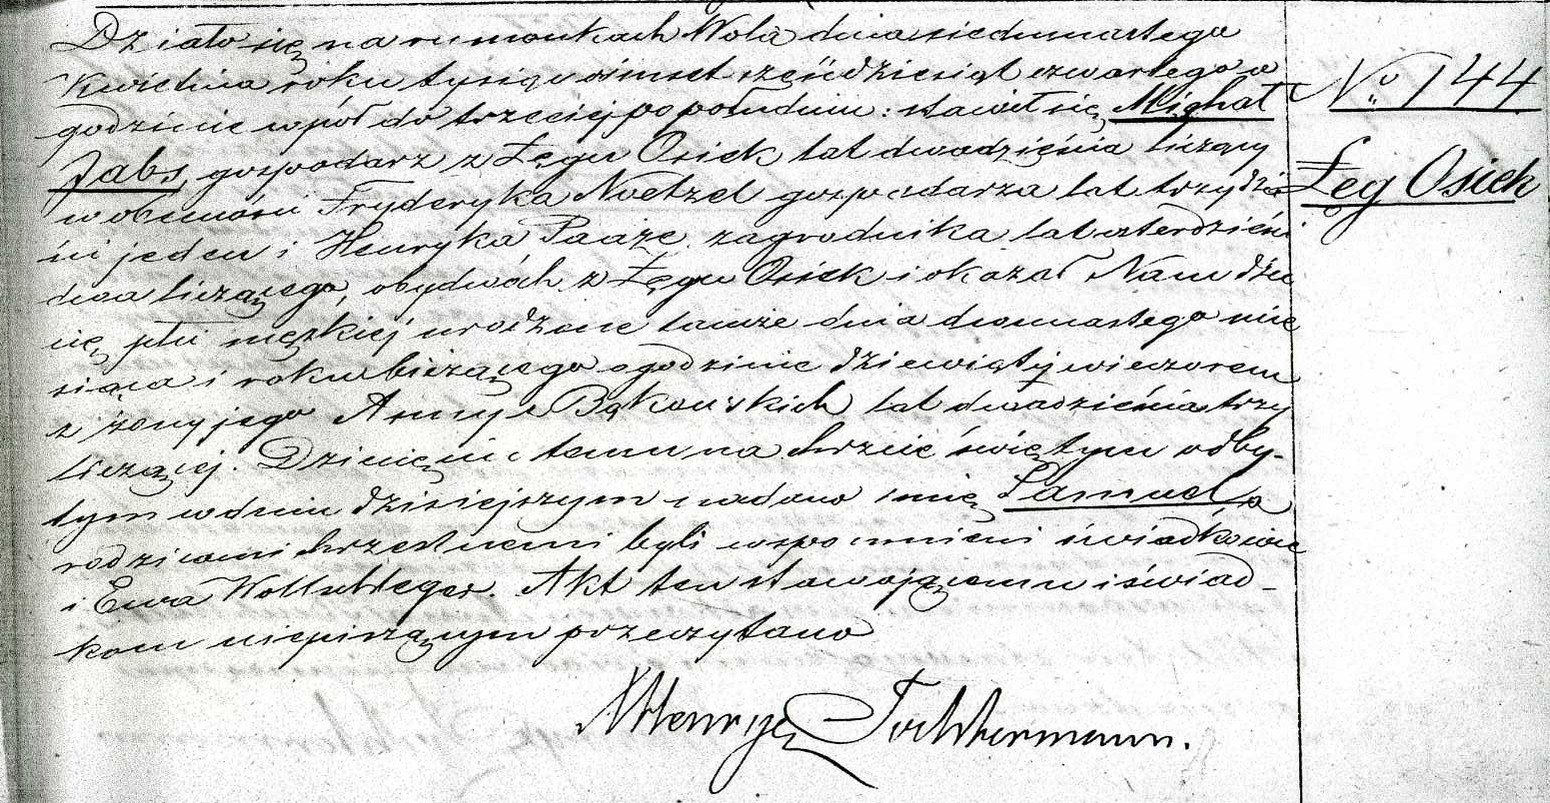 Działo się na rumunkach Wola dnia siedmnastego
Kwietnia roku tysiąc ośmset sześćdziesiąt czwartego o
godzinie wpół do trzeciej po południu: stawił się Michał
Jabs, gospodarz z Łęgu Osiek lat dwadzieścia liczący
w obecności Fryderyka Noetzel gospodarza lat trzydzie
ści jeden i Henryka Paaże zagrodnika lat czterdzieści
dwa liczącego, obydwóch z Łęgu Osiek i okazał Nam dzie
cię płci męzkiej urodzone tamże dnia dwunastego mie
siąca i roku bieżącego o godzinie dziewiątej wieczorem
z żony jego Anny z Bąkowskich lat dwadzieścia trzy
liczącej. Dziecięciu temu na chrzcie świętym odby-
tym w dniu dzisiejszym nadano imię Samuel, a
rodzicami chrzestnemi byli wspomnieni świadkowie
i Ewa. Akt ten stawającemu i świad-
kom niepiszącym przeczytano
Henryk Tochtermann.
No 144
Łęg Osiek